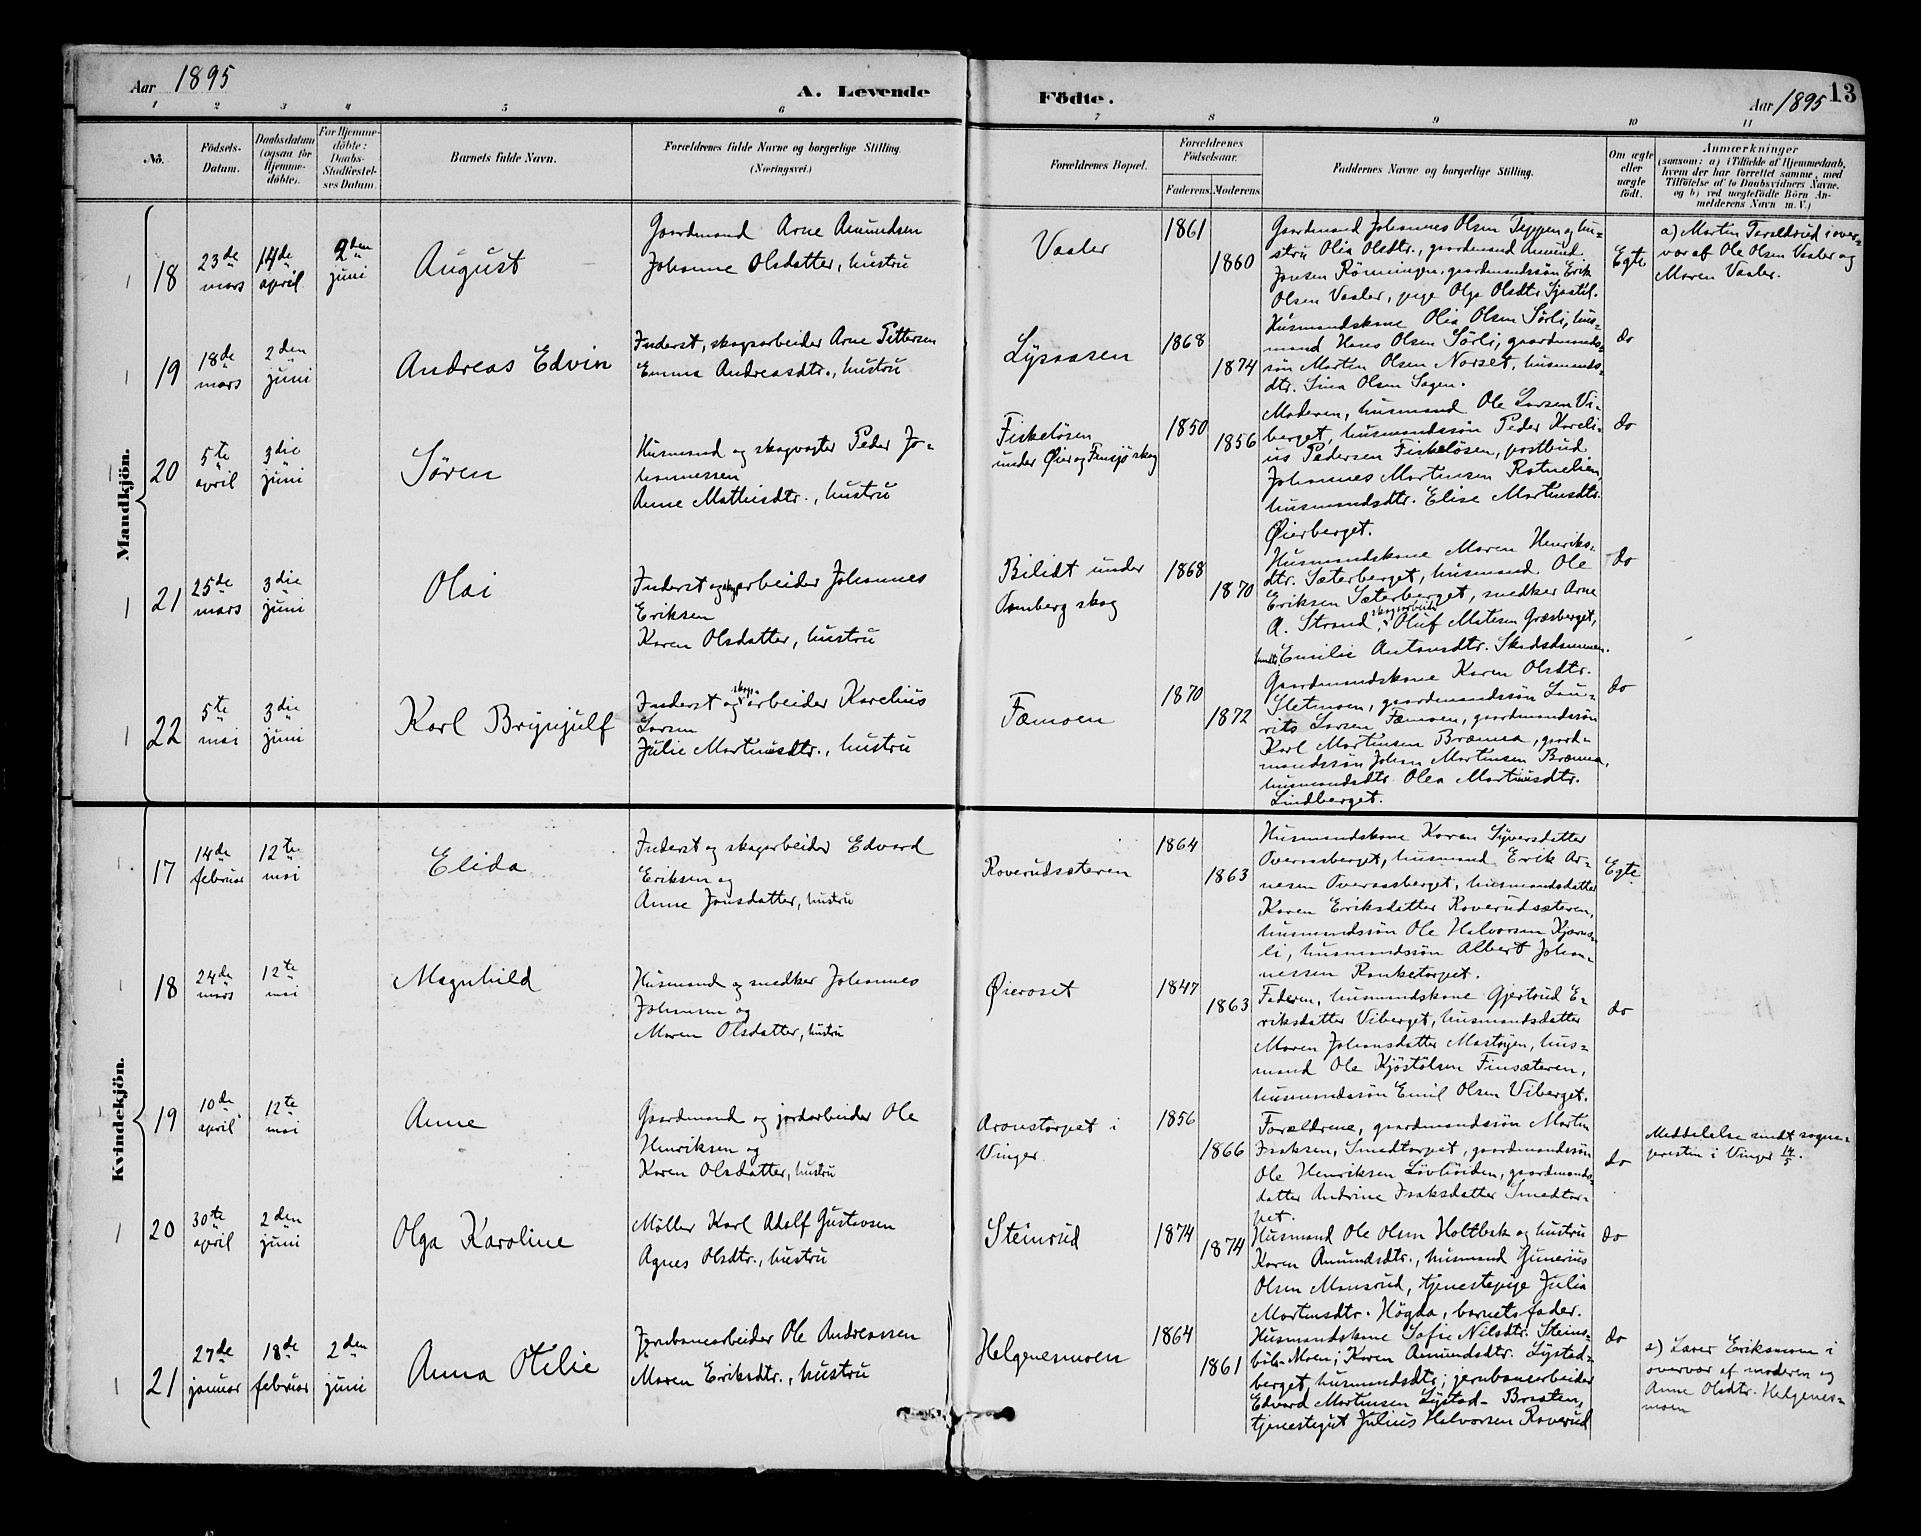 Aar 1895
A. Levende
Födte.
Aar 1895
13
1 2 3 4 5 6 7 8 9 10 11
No.
Födsels-
Datum.
Daabsdatum
(ogsaa for
Hjemme-
döbte).
For Hjemme-
döbte:
Daabs-
Stadfæstel-
ses Datum.
Barnets fulde Navn.
Forældrenes fulde Navne og borgerlige Stilling
(Næringsvei.)
Forældrenes Bopæl.
Forældrenes
Födselsaar.
Faderens. Moderens.
Faddernes Navne og borgerlige Stilling.
Om ægte
eller
uægte
födt.
Anmærkninger
(saasom: a) i Tilfælde af Hjemmedaab,
hvem der har forrettet samme, med
Tilföielse af to Daabsvidners Navne.
og b) ved uægtefödte Börn An-
melderens Navn m. V.)
Mandkjön.
18
23de
mars
14de
april
2den
juni
August
Gaardmand Arne Amundsen
Johanne Olsdatter, hustru
Vaaler
1861
1860
Gaardmand Johannes Olsen Tyggen og hu-
stru Olia Olsdtr., gaardmand Amund
Jonsen Rönningen, gaardmandssön Erik
Olsen Vaaler, pige Olga Olsdtr.
Egte
a) Martin Taraldrud i over-
vær af Ole Olsen Vaaler og
Maren Vaaler.
19
18de
mars
2den
juni
Andreas Edvin
Inderst, skogsarbeider Arne Pettersen
Emma Andreasdtr., hustru
Lysaasen
1868
1874
Husmandskone Olia Olsen Sörli, hus-
mand Hans Olsen Sörli, gaardmands-
sön Martin Olsen Norset, husmands-
dtr. Lina Olsen Sagen.
do
20
5te
april
3die
juni
Sören
Husmand og skogvogter Peder Jo-
hannessen
Anne Mathisdtr., hustru
Fiskelösen
under Öier og Finsjö skog
1850
1856
Moderen, husmand Ole Larsen Vi-
berget, husmandssön Peder Kareli-
us Pedersen Fiskelösen, postbud
Johannes Martinsen Rotnelien,
husmandsdtr. Elise Martinsdtr.
Öierberget.
do
21
25de
mars
3die
juni
Olai
Inderst og skogarbeider Johannes
Eriksen
Karen Olsdatter, hustru
Bilidt under
Tomberg skog
1868
1870
Husmandskone Maren Henriks-
dtr. Sæterberget, husmand Ole
Eriksen Sæterberget, snedker Arne
A. Strand, skogsarbeider Oluf Matisen Græsberget,
Emilie Antonsdtr.
do
22
5te
mai
3die
juni
Karl Brynjulf
Inderst og skogs-arbeider Karelius
Larsen
Julie Martinusdtr., hustru
Fæmoen
1870
1872
Gaardmandskone Karen Olsdtr.
Sletmoen, gaardmandssön Lau-
rits Larsen Fæmoen, gaardmandssön
Karl Martinsen Brænna, gaard-
mandssön Johan Martinsen Brænna,
husmandsdtr. Olea Martinusdtr.
Lindberget.
do
Kvindekjön.
17
14de
februar
12te
mai
Elida
Inderst og skogarbeider Edvard
Eriksen og
Anne Jonsdatter, hustru
Roverudsæteren
1864
1863
Husmandskone Karen Syversdatter
Overaasberget, husmand Erik Ar-
nesen Overaasberget, husmandsdatter
Karen Eriksdatter Roverudsæteren,
husmandssön Ole Halvorsen Kjærns-
li, husmandssön Albert Johan-
nessen Ranketorpet.
Egte
18
24de
mars
12te
mai
Magnhild
Husmand og snedker Johannes
Johansen og
Maren Olsdatter, hustru
Öieroset
1847
1863
Faderen, husmandskone Gjertrud E-
riksdatter Viberget, husmandsdatter
Maren Johansdatter Mastöyen, hus-
mand Ole Kjöstölsen Finsæteren,
husmandssön Emil Olsen Viberget.
do
19
10de
april
12te
mai
Anne
Gaardmand og jordarbeider Ole
Henriksen og
Karen Olsdatter, hustru
Aronstorpet i
Vinger
1856
1866
Forældrene, gaardmandssön Martin
Isaksen, Smedtorpet, gaardmandssön
Ole Henriksen Lövhöiden, gaardmands-
datter Andrine Isaksdatter Smedtor-
pet.
do
Meddelelse sendt sogne-
presten i Vinger 14/5.
20
30te
april
2den
juni
Olga Karoline
Möller Karl Adolf Gustavsen
Agnes Olsdtr., hustru
Steinrud
1874
1874
Husmand Ole Olsen Holtbak og hustru
Karen Amundsdtr., husmand Gunerius
Olsen Monsrud, tjenestepige Julia
Martinsdtr. Högda, barnets fader.
do
21
27de
januar
18de
februar
2den
juni
Anna Otilie
Jernbanearbeider Ole Andreassen
Maren Eriksdtr., hustru
Helgenesmoen
1864
1861
Husmandskone Sofie Nilsdtr. Steins-
böl-Moen; Karen Amundsdtr. Lystad-
berget, husmandsdtr; jernbanearbeider
Edvard Martinsen Lystad-Braaten,
tjenestegut Julius Halvorsen Roverud
do
a) Lærer Eriksmoen i
overvær af moderen og
Anne Olsdtr. Helgenes-
moen